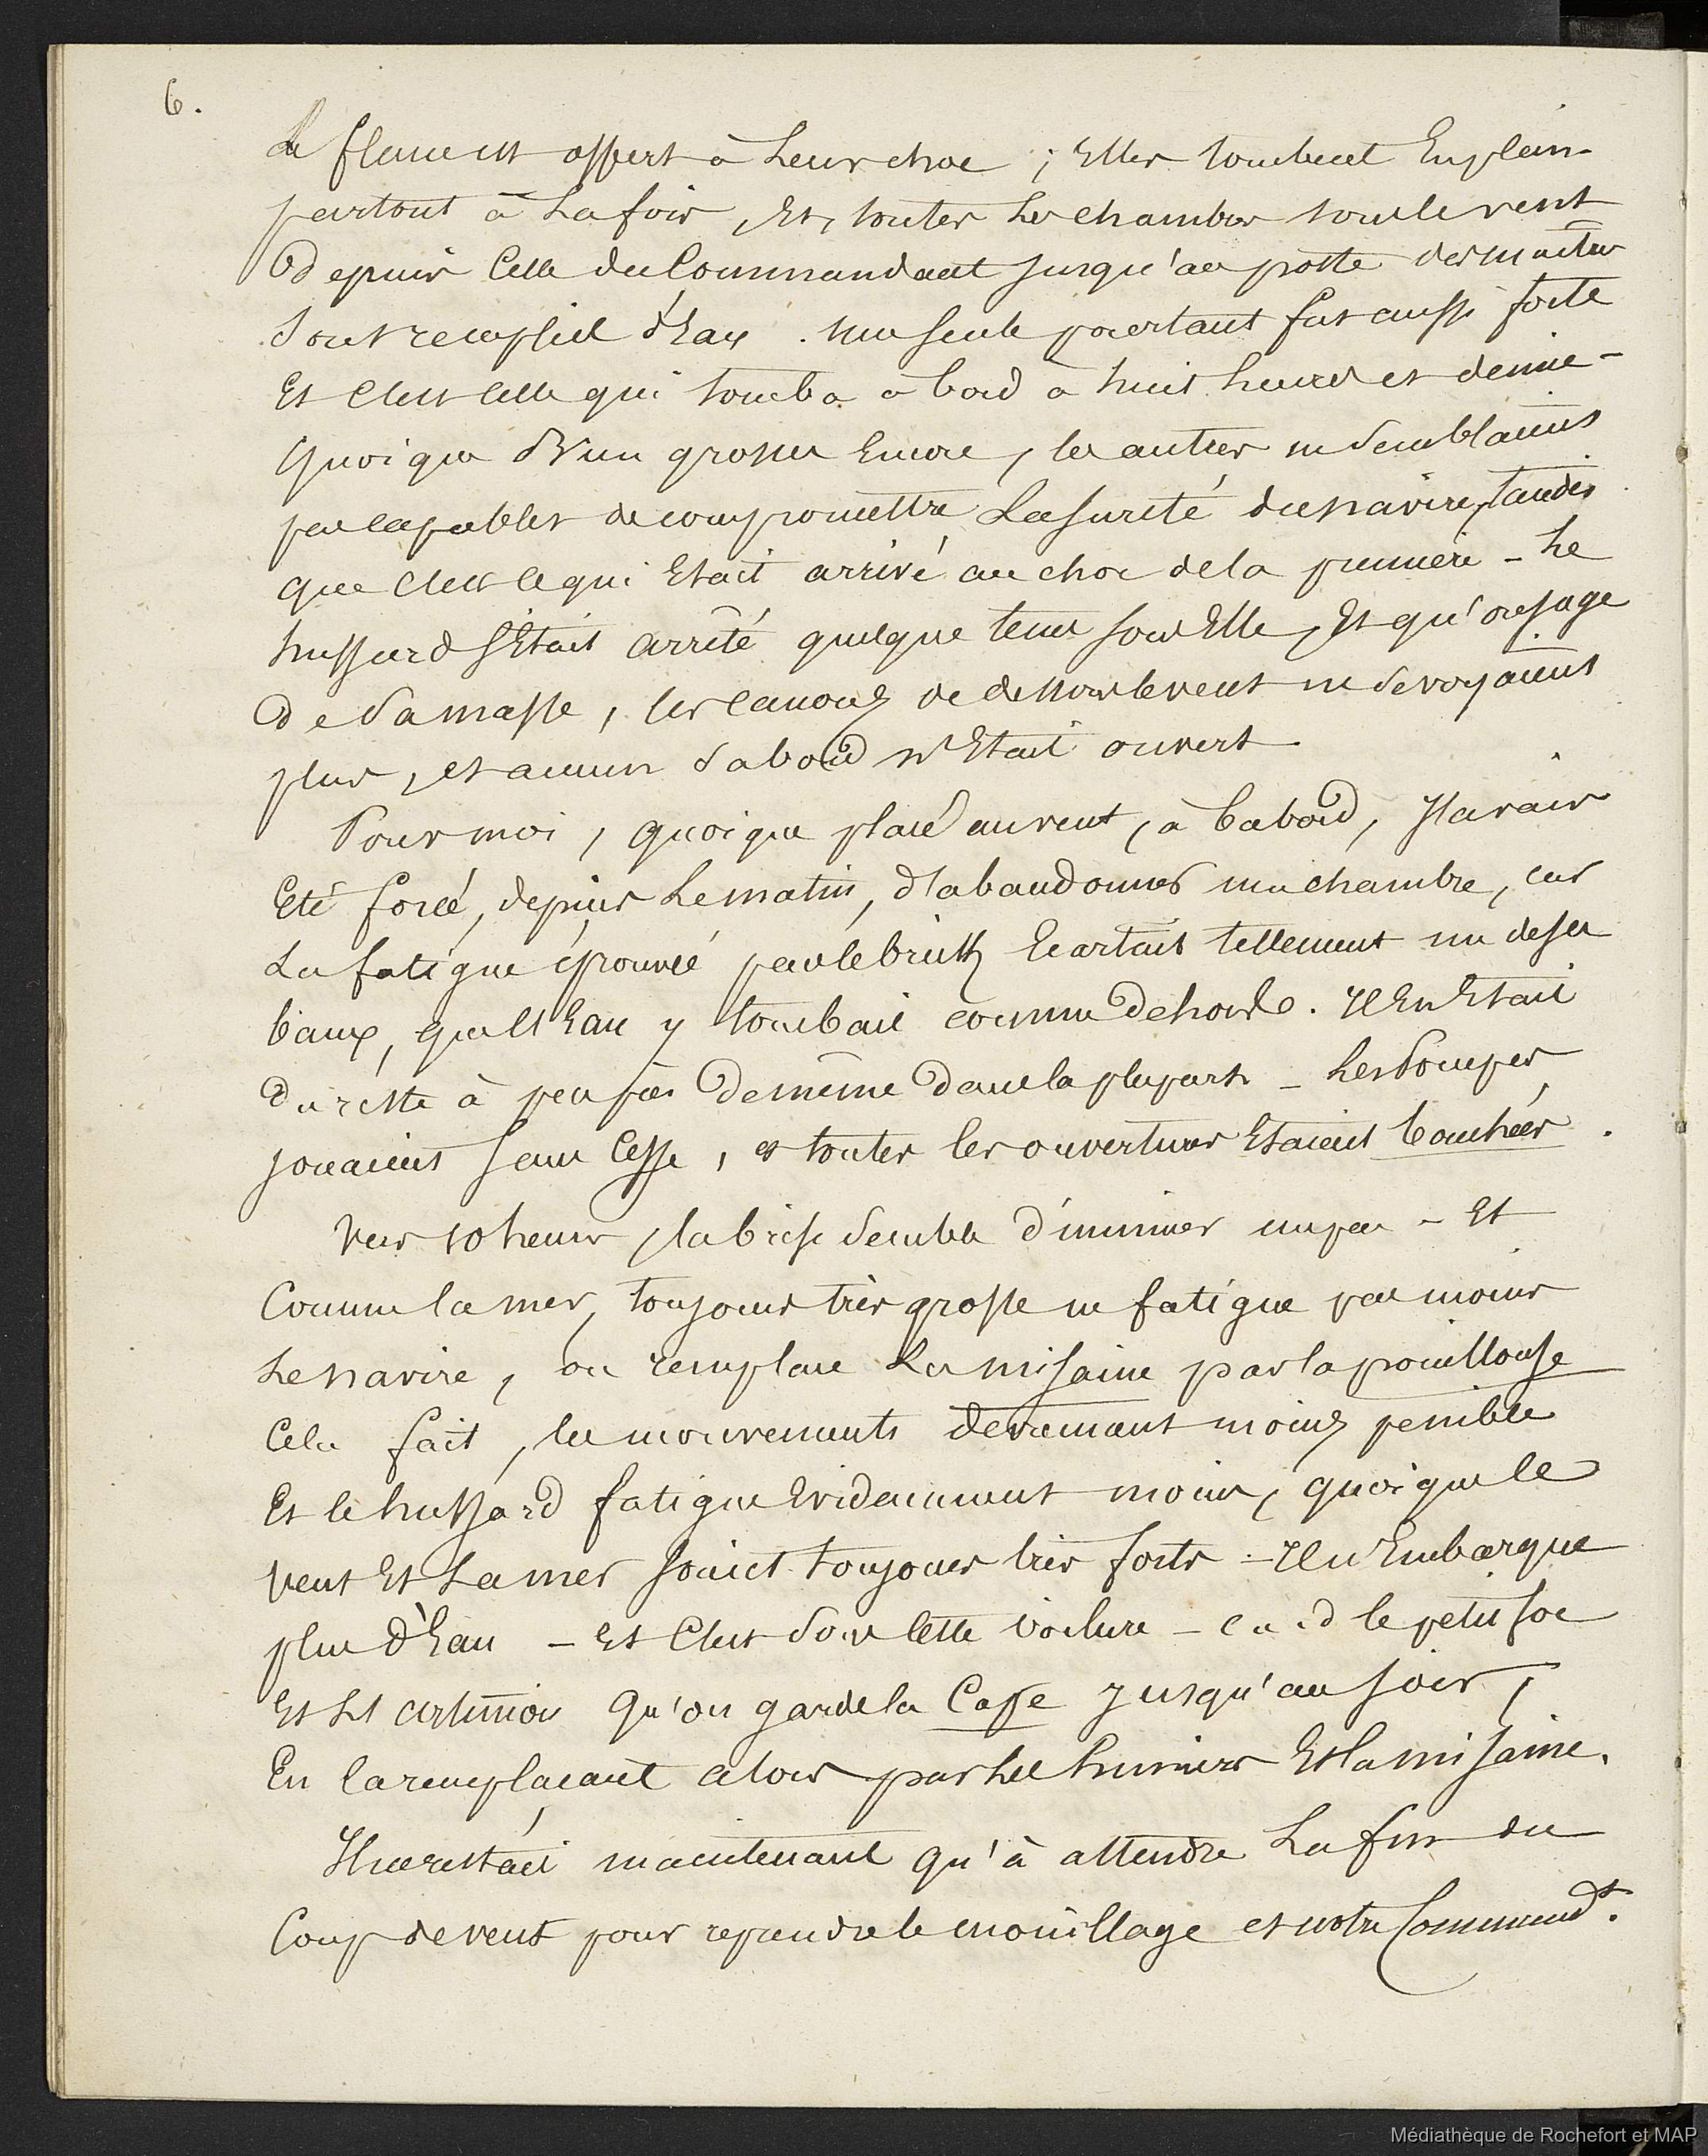 6.
Le flanc est offert à Leur choc ; Elles tombent En plein
partout à La fois, Et, toutes Les chambres sous le vent
Depuis Celle du Commandant jusqu'au poste des maîtres
Sont remplies d'Eau. une seule pourtant fut aussi forte
Et C'est Celle qui tomba à bord à huit heures et demie –
Quoique d'un grosseur Encore, les autres ne semblaient
pas capables de compromettre La sureté du navire, tandis
que c'est ce qui Etait arrivé au choc de la première – Le
hussard s'Etait arrêté quelque tems sous Elle, Et qu'
De sa masse, les canons de dessous le vent ne se voyaient
plus, et aucun sabord n'Etait ouvert.
Pour moi, quoique placé au vent, à babord, J'avais
Eté forcé, depuis Le matin, d'abandonner ma chambre, car
La fatigue éprouvée par le brick Ecartait tellement un de ses
baux, que l'Eau y tombait comme Dehors. Il En Etait
Du reste à peu près De même Dans la plupart – Les Pompes
jouaient sans Cesse, et toutes les ouvertures Etaient bouchées.
Vers 10 heures, la brise semble diminuer un peu – Et
Comme la mer, toujours très grosse ne fatigue pas moins
Le navire, on remplace La misaine par la pouillouse
Cela fait, les mouvements deviennent moins penibles
Et le hussard fatigue Evidemment moins, quoique le
vent Et La mer soient toujours très forts – Il n'Embarque
plus d'Eau – Et C'est sous cette voilure – le petit foc
Et L'artimon Qu'on garde la Cape jusqu'au soir,
En la remplaçant alors par Les huniers Et la misaine.
Il ne restait maintenant qu'à attendre La fin du
Coup de vent pour reprendre le mouillage et notre Commandt.
Médiathèque de Rochefort et MAP